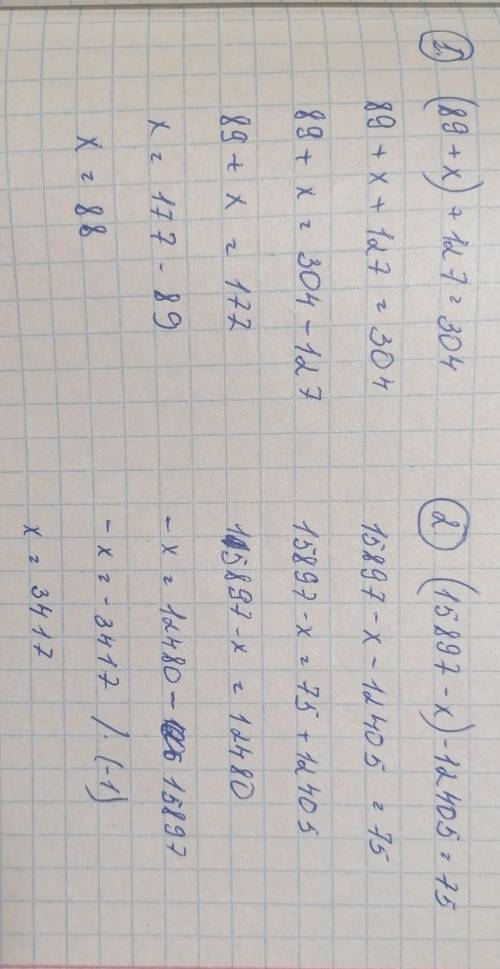 1. (89 + x) + 127 = 304
89 + x + 127 = 304
89 + x = 304 - 127
89 + x = 177
x = 177 - 89
x = 88
2) (15897 - x) - 12405 = 75
15897 - x - 12405 = 75
15897 - x = 75 + 12405
15897 - x = 12480
- x = 12480 - 15897
- x = - 3417 /· (-1)
x = 3417